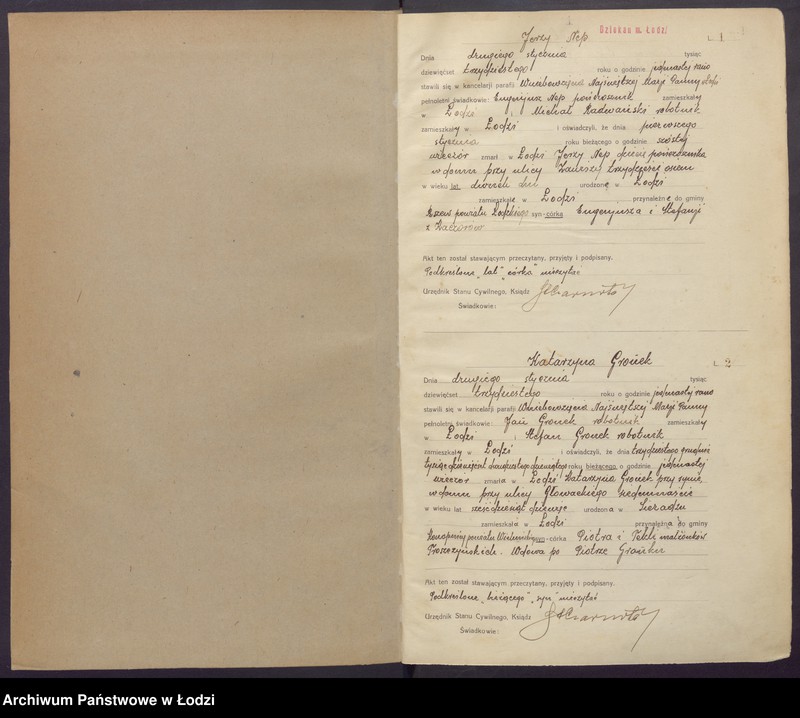 Dziekan m. Łodzi
Jerzy Nep L. 1
Dnia drugiego stycznia tysiąc
dziewięćset trzydziestego roku o godzinie jedenastej rano
stawili się w kancelarji parafii Wniebowzięcia Najświętszej Marji Panny
pełnoletni świadkowie: Eugenjusz Nep zamieszkały
w Łodzi i Michał Radwański robotnik
zamieszkały w Łodzi i oświadczyli, że dnia pierwszego
stycznia roku bieżącego o godzinie szóstej
wieczór zmarł w Łodzi Jerzy Nep
w domu przy ulicy trzydzieści osiem
w wieku lat dwóch dni urodzone w Łodzi
zamieszkałe w Łodzi przynależne do gminy
powiatu Łódzkiego syn-córka Eugenjusza i Stefanji
z
Akt ten został stawającym przeczytany, przyjęty i podpisany.
Podkreślone „lat" „córka" nieczytać
Urzędnik Stanu Cywilnego, Ksiądz
Świadkowie:
Katarzyna Gronek L. 2
Dnia drugiego stycznia tysiąc
dziewięćset trzydziestego roku o godzinie jedenastej rano
stawili się w kancelarji parafii Wniebowzięcia Najświętszej Marji Panny
pełnoletni świadkowie: Jan Gronek robotnik zamieszkały
w Łodzi i Stefan Gronek robotnik
zamieszkały w Łodzi i oświadczyli, że dnia trzydziestego grudnia
tysiąc dziewięćset dwudziestego dziewiątego roku bieżącego o godzinie jedenastej
wieczór zmarła w Łodzi Katarzyna Gronek przy synie,
w domu przy ulicy Głowackiego siedemnaście
w wieku lat sześćdziesiąt dziewięć urodzona w Sieradzu
zamieszkała w Łodzi przynależna do gminy
powiatu syn-córka Piotra i Tekli małżonków
Wdowa po Piotrze Gronku
Akt ten został stawającym przeczytany, przyjęty i podpisany.
Podkreślone „bieżącego" „syn" nieczytać
Urzędnik Stanu Cywilnego, Ksiądz
Świadkowie:
Archiwum Państwowe w Łodzi